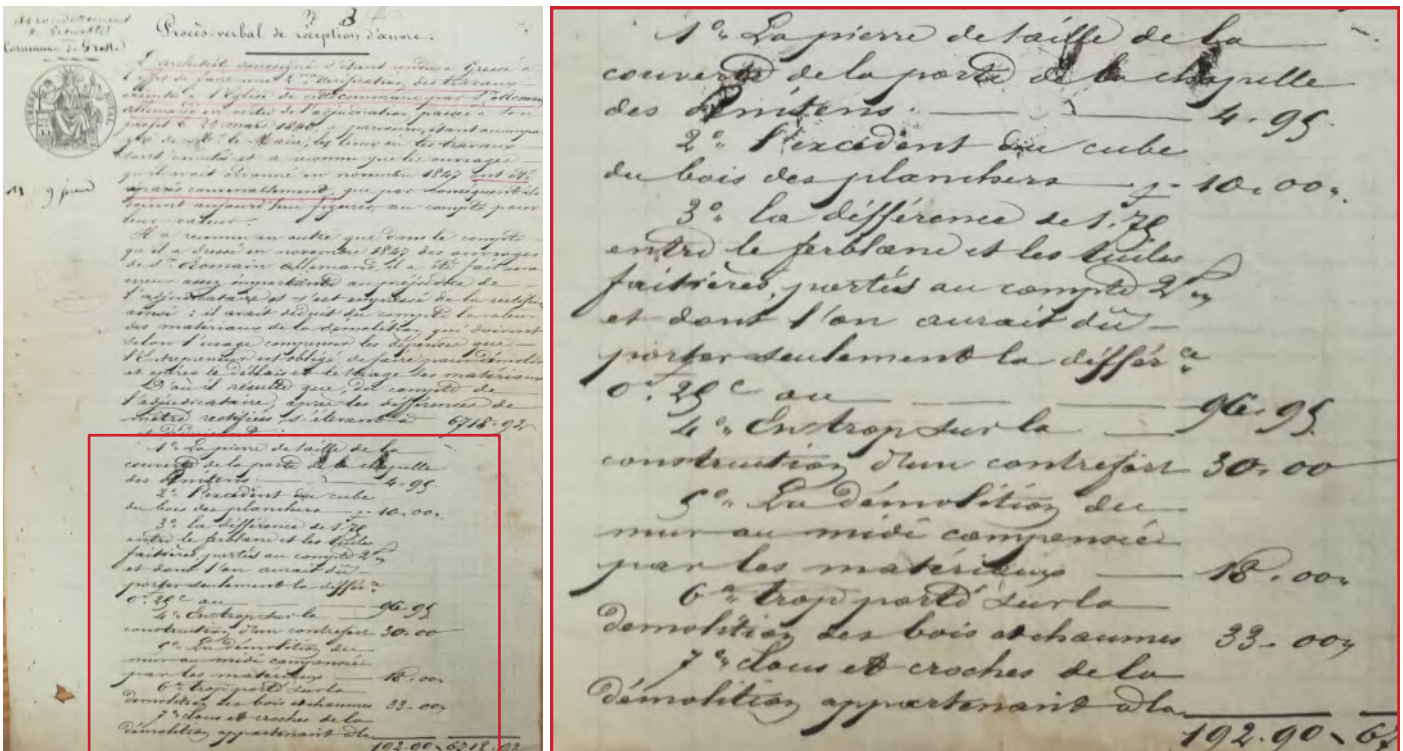 arrondissement
de Grenoble
Commune de Gresse
Procès-verbal de réception d'œuvre.
L'architecte soussigné s'étant rendu à Gresse à
l'effet de faire une 2me vérification des travaux
exécutés à l'Eglise de cette commune par Sr Romain
Allemand en vertu de l'adjudication passée à son
profit le 23 mars 1846, a parcouru, étant accompa-
gné de Mr le Maire, les lieux où les travaux
sont exécutés et a reconnu que les ouvrages
qu'il avait en novembre 1847 ont été
réparés convenablement, que par conséquent ils
doivent aujourd'hui figurer au compte pour
leur valeur.
Il a reconnu en outre que dans le compte
qu'il a dressé en novembre 1847 des ouvrages
de Sr Romain Allemand, il a été fait une
erreur assez importante au préjudice de
l'adjudicataire et s'est empressé de la rectifier
ainsi : il avait déduit du compte la valeur
des matériaux de la démolition, qui doivent
selon l'usage compenser les dépenses que
l'Entrepreneur est obligé de faire pour démolir
et opérer le déblais et le triage des matériaux
D'où il résulte que, du compte de
l'adjudicataire, après les différences de
métré rectifiées, s'élevant à 6718.92
1° La pierre de taille de la
couverte de la porte de la chapelle
des Pénitens. 4.95
2° l'excédent du cube
du bois des planchers 10.00
3° la différence de 1.75
entre le ferblanc et les tuiles
faitières, portés au compte 2f
et dont l'on aurait dû
porter seulement la différce
0f.25c au 96.95
4° En trop sur la
construction d'un contrefort 30.00
5° La démolition du
mur au midi compensée
par les matériaux 18.00
6° trop porté sur la
démolition des bois et chaumes 33.00
7° clous et croches de la
démolition appartenant à la
192.90 6718.92
1° La pierre de taille de la
couverte de la porte de la chapelle
des Pénitens. 4.95
2° l'excédent du cube
du bois des planchers 10.00
3° la différence de 1.75
entre le ferblanc et les tuiles
faitières, portés au compte 2f
et dont l'on aurait dû
porter seulement la différce
0f.25c au 96.95
4° En trop sur la
construction d'un contrefort 30.00
5° La démolition du
mur au midi compensée
par les matériaux 18.00
6° trop porté sur la
démolition des bois et chaumes 33.00
7° clous et croches de la
démolition appartenant à la
192.90